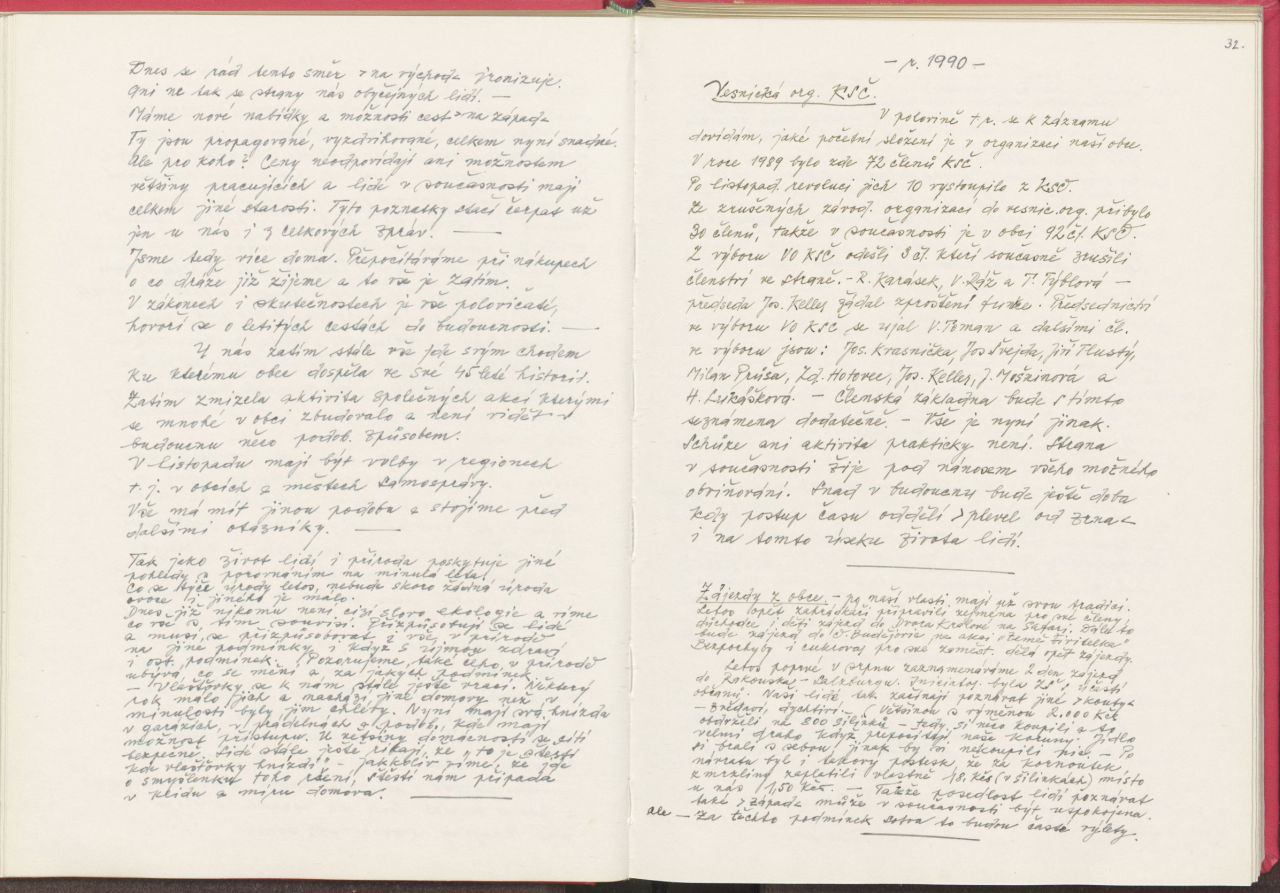 Dnes se rád tento směr > na východ < ironizuje.
Ani ne tak se strany nás obyčejných lidí. —
Máme nové nabídky a možnosti cest > na západ <
Ty jsou propagované, vyzdvihované, celkem nyní snadné.
Ale pro koho? Ceny neodpovídají ani možnostem
většiny pracujících a lidé v současnosti mají
celkem jiné starosti. Tyto poznatky stačí čerpat už
jen u nás i z celkových zpráv. —
Jsme tedy více doma. Přepočítáváme při nákupech
o co dráže již žijeme a to vše je zatím.
V zákonech i skutečnostech je vše polovičaté,
hovoří se o letitých cestách do budoucnosti. —
U nás zatím stále vše jde svým chodem
ku kterému obec dospěla ve své 45 leté historii.
Zatím zmizela aktivita společných akcí kterými
se mnohé v obci zbudovalo a není vidět v
budoucnu něco podob. způsobem.
V listopadu mají být volby v regionech
t. j. v obcích a městech samosprávy.
Vše má mít jinou podobu a stojíme před
dalšími otázníky. —
Tak jako život lidí i příroda poskytuje jiné
pohledy s porovnáním na minulá léta.
Co se týče úrody letos, nebude skoro žádná úroda
ovoce i jiného je málo.
Dnes již nikomu není cizí slovo ekologie a víme
co vše s tím souvisí. Přizpůsobují se lidé
a musí se přizpůsobovat i vše v přírodě
na jiné podmínky i když s újmou zdraví
i ost. podmínek. Pozorujeme také čeho v přírodě
ubývá, co se mění a za jakých podmínek.
— Vlaštovky se k nám stále ještě vrací. Některý
rok málo jich a nachází jiné domovy než v
minulosti byly jim chlévy. Nyní mají svá hnízda
v garážích, v prádelnách a podob., kde mají
možnost přístupu. U většiny domácností se cítí
bezpečně. Lidé stále ještě říkají, že "to je štěstí
kde vlaštovky hnízdí" – jakkoliv víme, že jde
o smyšlenku toho rčení, štěstí nám připadá
v klidu a míru domova. —
32.
– r. 1990 –
Vesnická org. KSČ.
V polovině t.r. se k záznamu
dovídám, jaké početní složení je v organizaci naší obce.
V roce 1989 bylo zde 72 členů KSČ.
Po listopad. revoluci jich 10 vystoupilo z KSČ.
Ze zrušených závod. organizací do vesnic. org. přibylo
30 členů, takže v současnosti je v obci 92 čl. KSČ.
Z výboru VO KSČ odešli 3 čl. kteří současně zrušili
členství ve straně. – R. Karásek, V. Ráž a T. Týblová –
předseda Jos. Keller žádal zproštění funkce. Předsednictví
ve výboru VO KSČ se ujal V. Toman a dalšími čl.
ve výboru jsou: Jos. Krasnička, Jos Švejda, Jiří Tlustý,
Milan Průša, Zd. Hotovec, Jos. Keller, J. Mošninová a
H. Lukášková. – Členská základna bude s tímto
seznámena dodatečně. – Vše je nyní jinak.
Schůze ani aktivita prakticky není. Strana
v současnosti žije pod nánosem všeho možného
obviňování. Snad v budoucnu bude ještě doba
kdy postup času oddělí > plevel od zrna <
i na tomto úseku života lidí.
Zájezdy z obce. – po naší vlasti mají již svou tradici.
Letos opět zahrádkáři připravili zejména pro své členy,
důchodce i děti zájezd do Dvora Králové na Safari. Dále to
bude zájezd do Č. Budějovic na akci "Země živitelka"
Bezpochyby i cukrovar pro své zaměst. dělá opět zájezdy.
Letos poprvé v srpnu zaznamenáváme 2 den. zájezd
do Rakouska – Salzburgu. Iniciátor byla ZŠ s účastí
občanů. Naši lidé tak začínají poznávat jiné > kouty <
– zvědaví, dychtiví. (Většinou s výměnou 2.000 Kčs
obdrželi na 800 šilinků – tedy si něco koupili a to
velmi draho když přepočítají naše koruny. Jídlo
si brali s sebou, jinak by si nekoupili nic. – Po
návratu byl i takový postesk, že za kornoutek
zmrzliny zaplatili vlastně 18. Kčs (v šilinkách) místo
u nás 1,50 Kčs. – Takže posedlost lidí poznávat
také > západ < může v současnosti být uspokojena.
ale – Za těchto podmínek sotva to budou časté výlety.